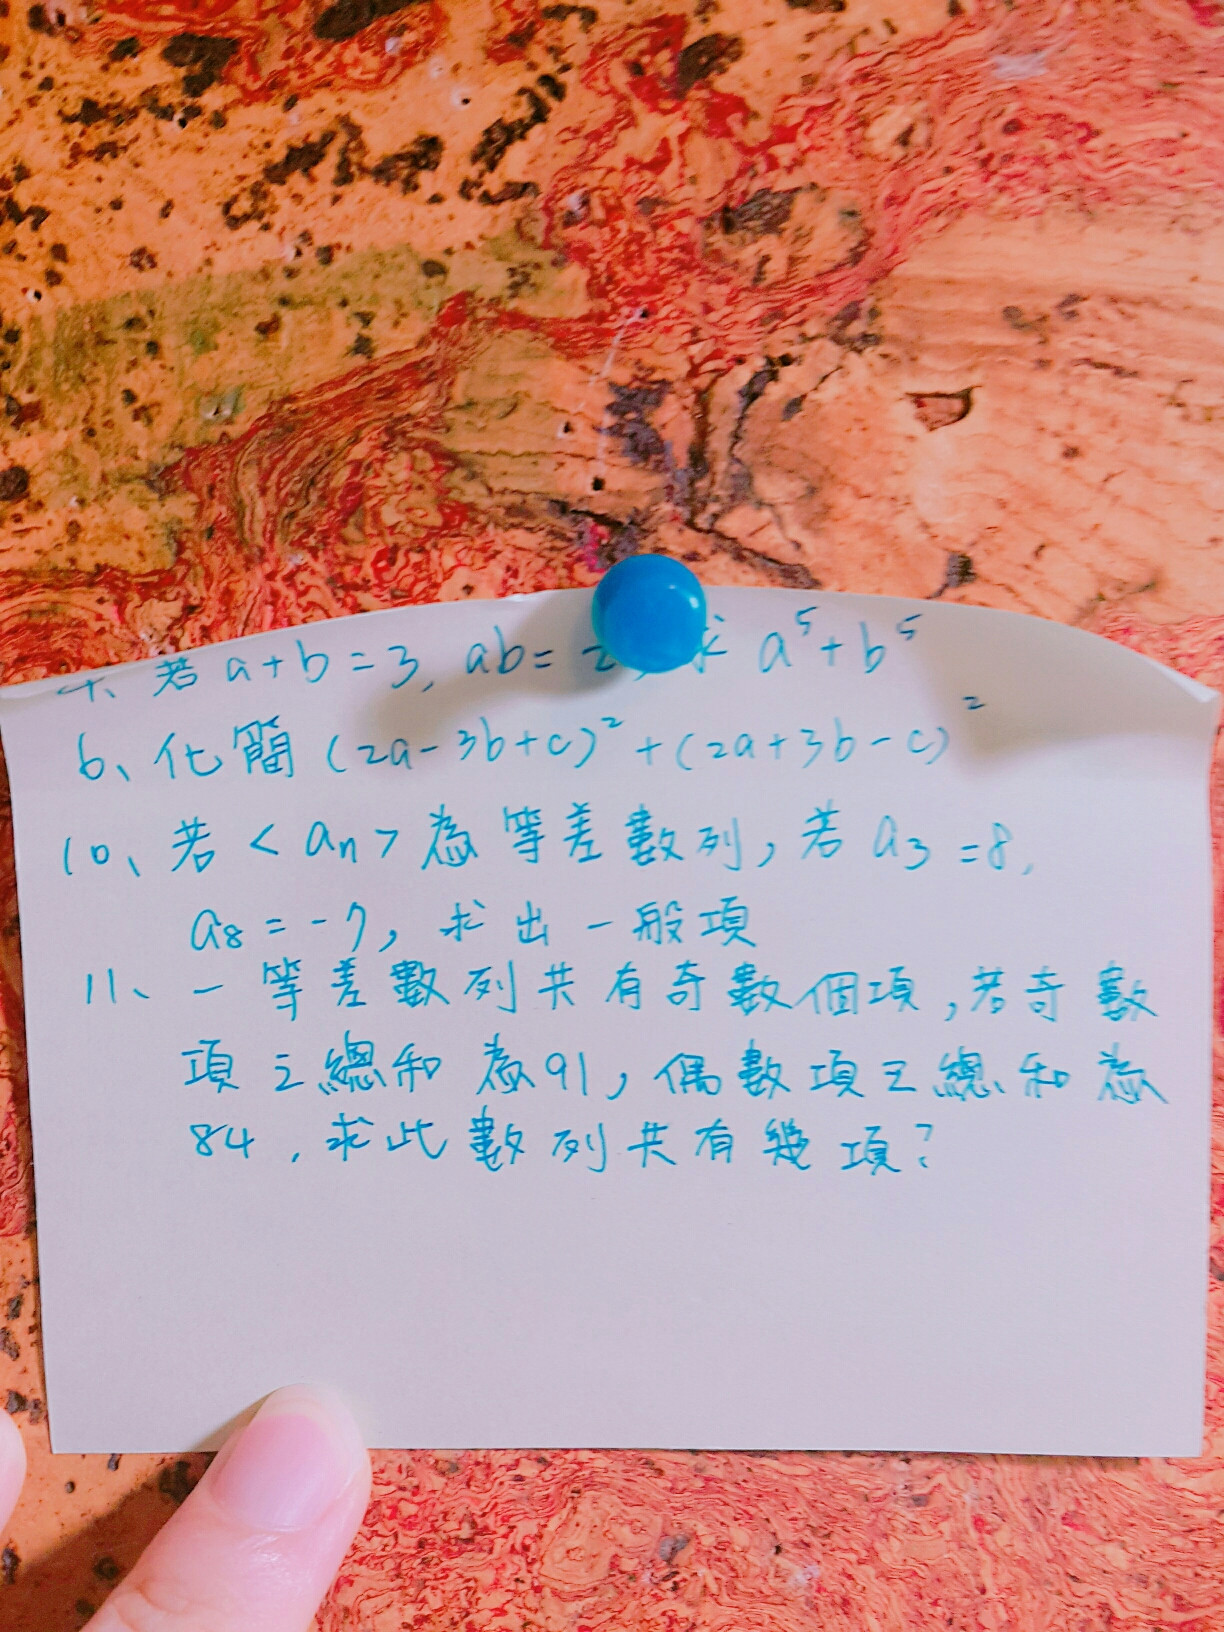 若 a+b=3, ab=2, 求 a⁵+b⁵
6、化簡 (2a-3b+c)²+(2a+3b-c)²
10、若<an>為等差數列,若 a₃=8,
a₈=-7, 求出一般項
11、一等差數列共有奇數個項,若奇數
項之總和為91, 偶數項之總和為
84, 求此數列共有幾項?